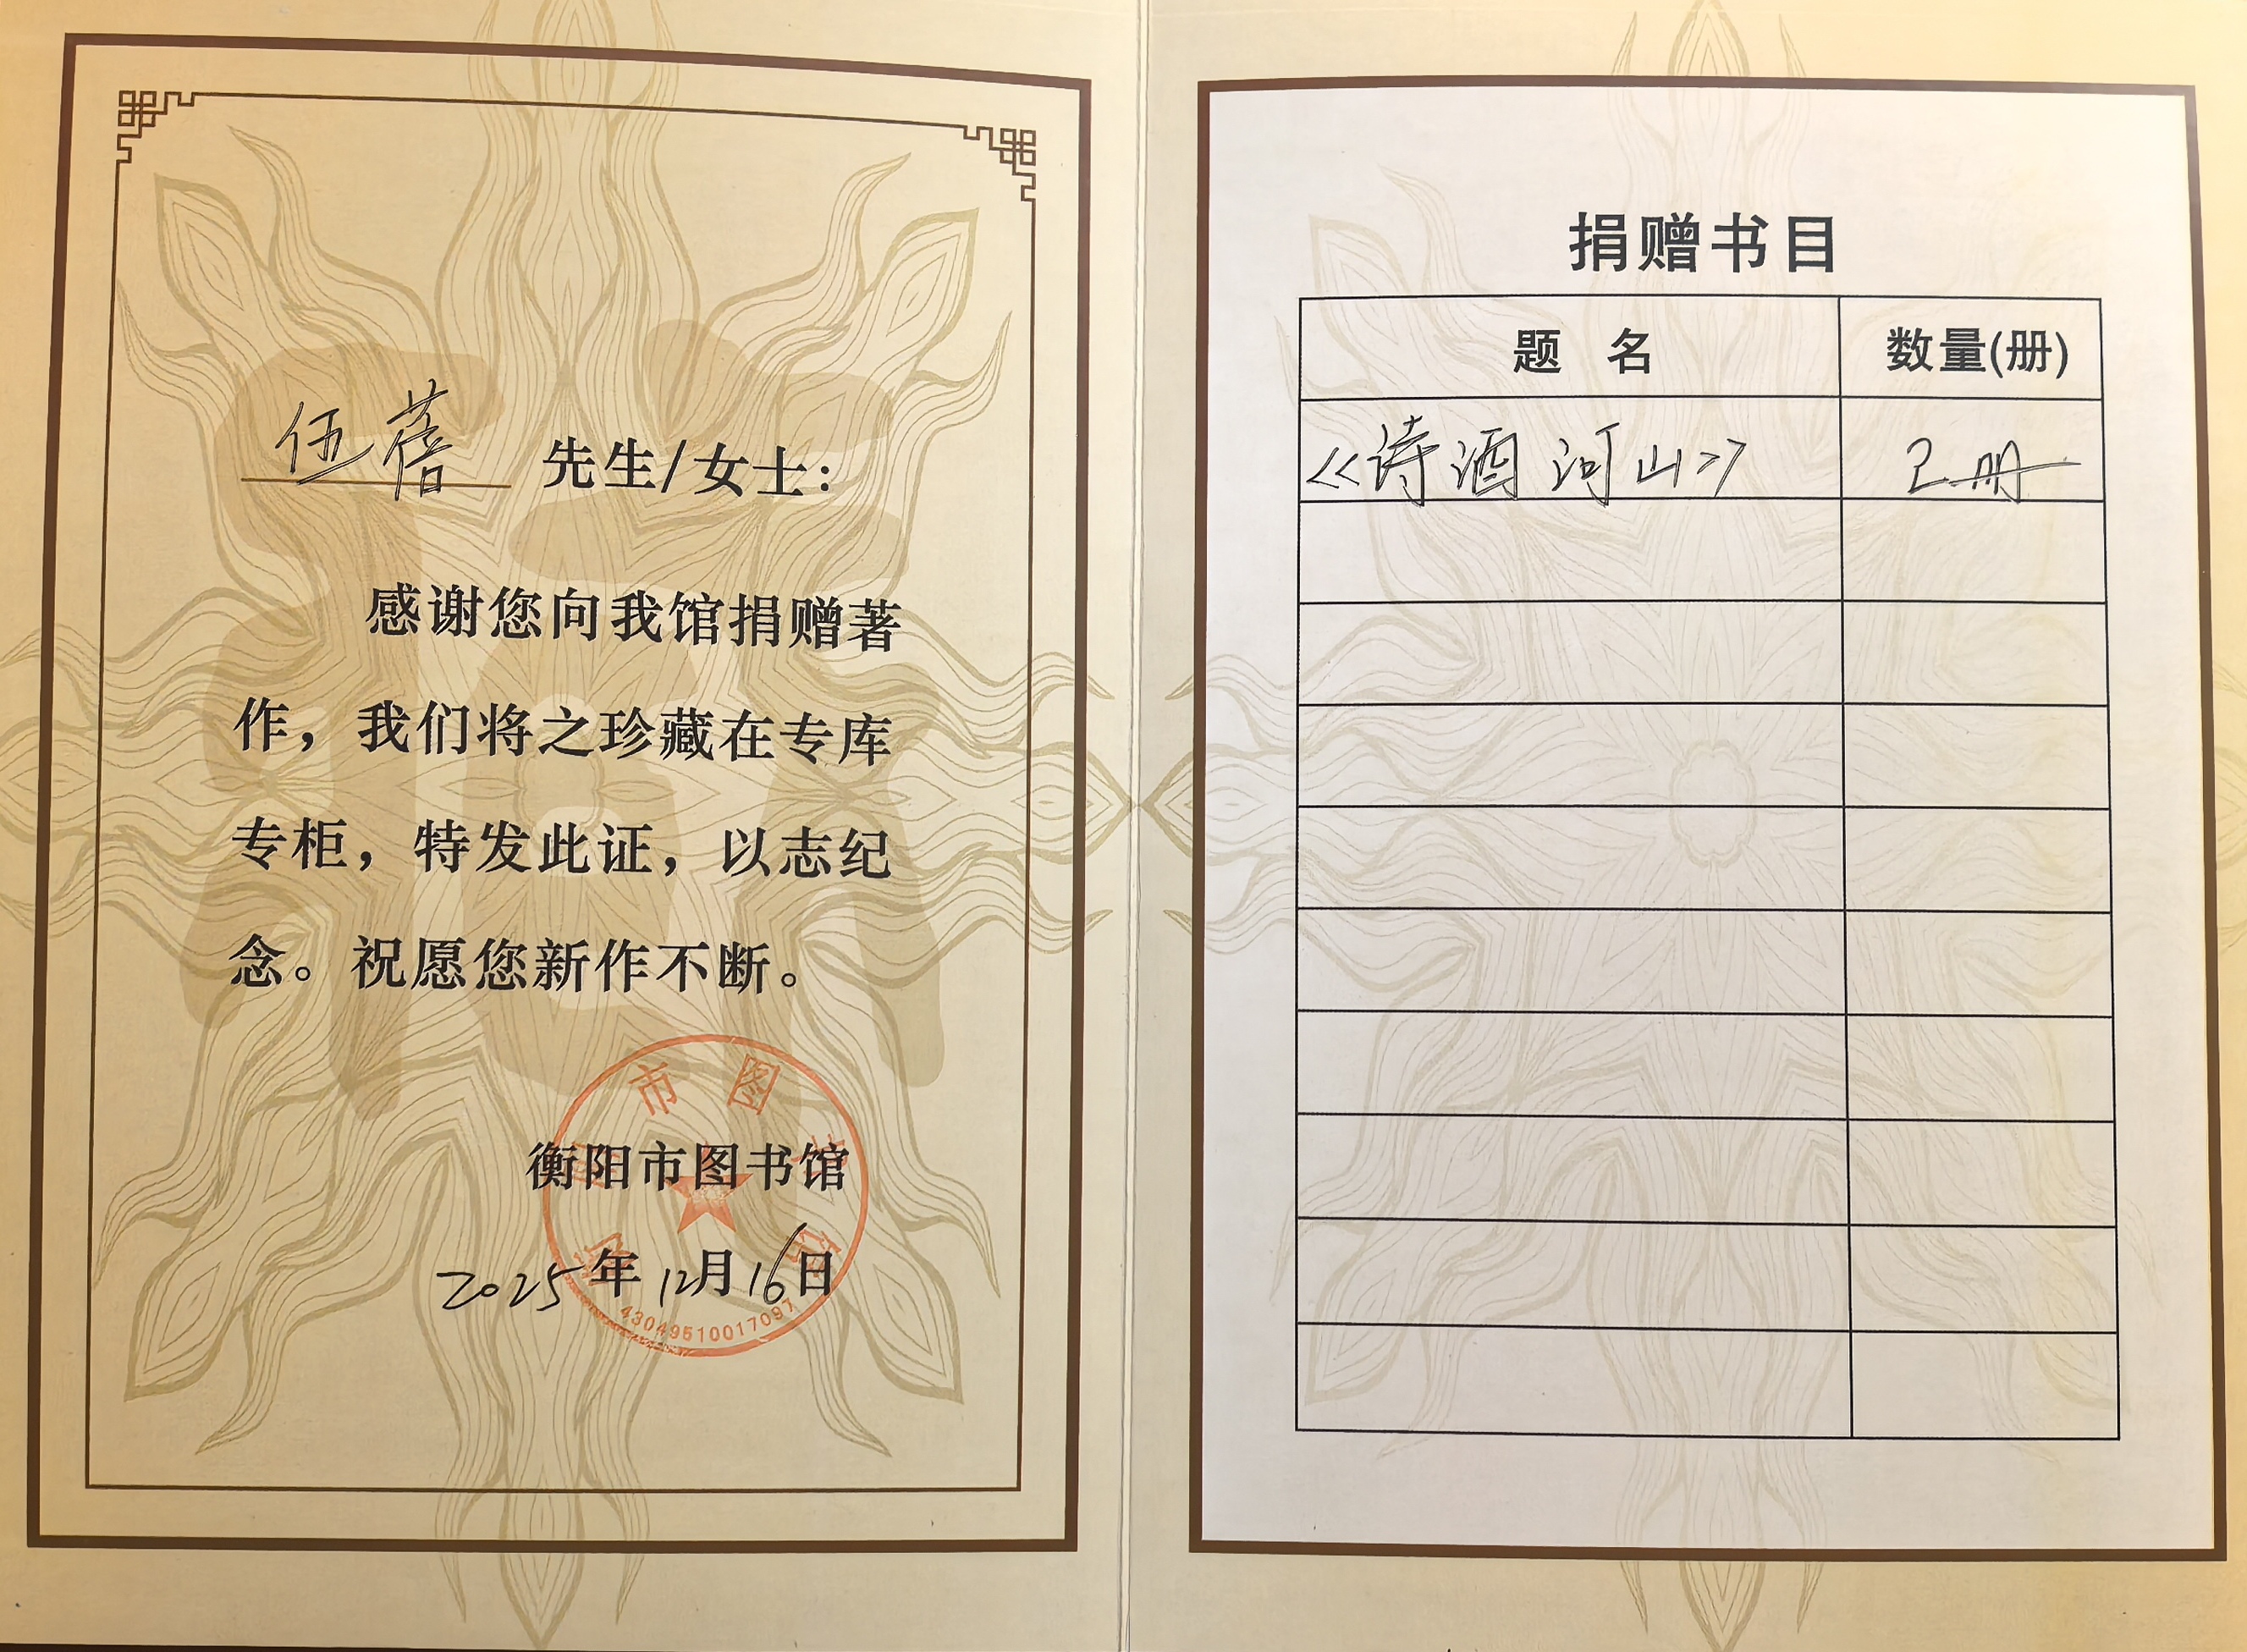 伍蓓 先生/女士:
感谢您向我馆捐赠著
作，我们将之珍藏在专库
专柜，特发此证，以志纪
念。祝愿您新作不断。
衡阳市图书馆
2025年12月16日
衡阳市图书馆
43049510017097
捐赠书目
题 名 数量(册)
《诗酒河山》 2册